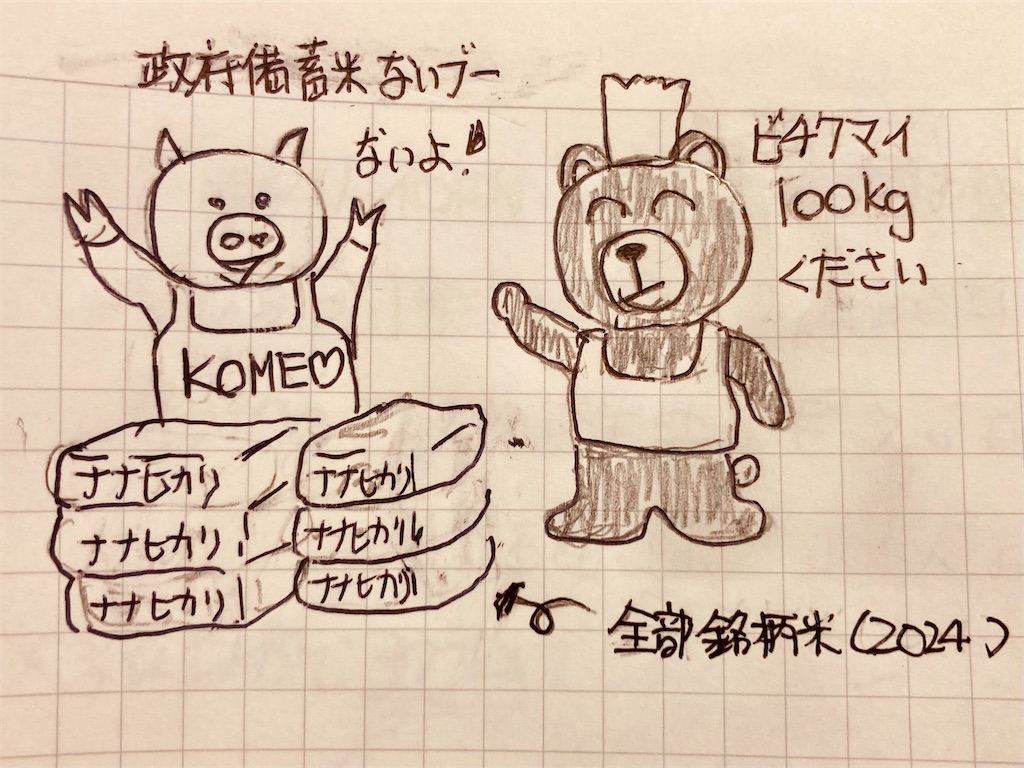 政府備蓄米ないブー
ないよ!
ビチクマイ
100kg
ください
KOME♡
ナナヒカリ
ナナヒカリ
ナナヒカリ
ナナヒカリ
ナナヒカリ
ナナヒカリ
全部銘柄米(2024)